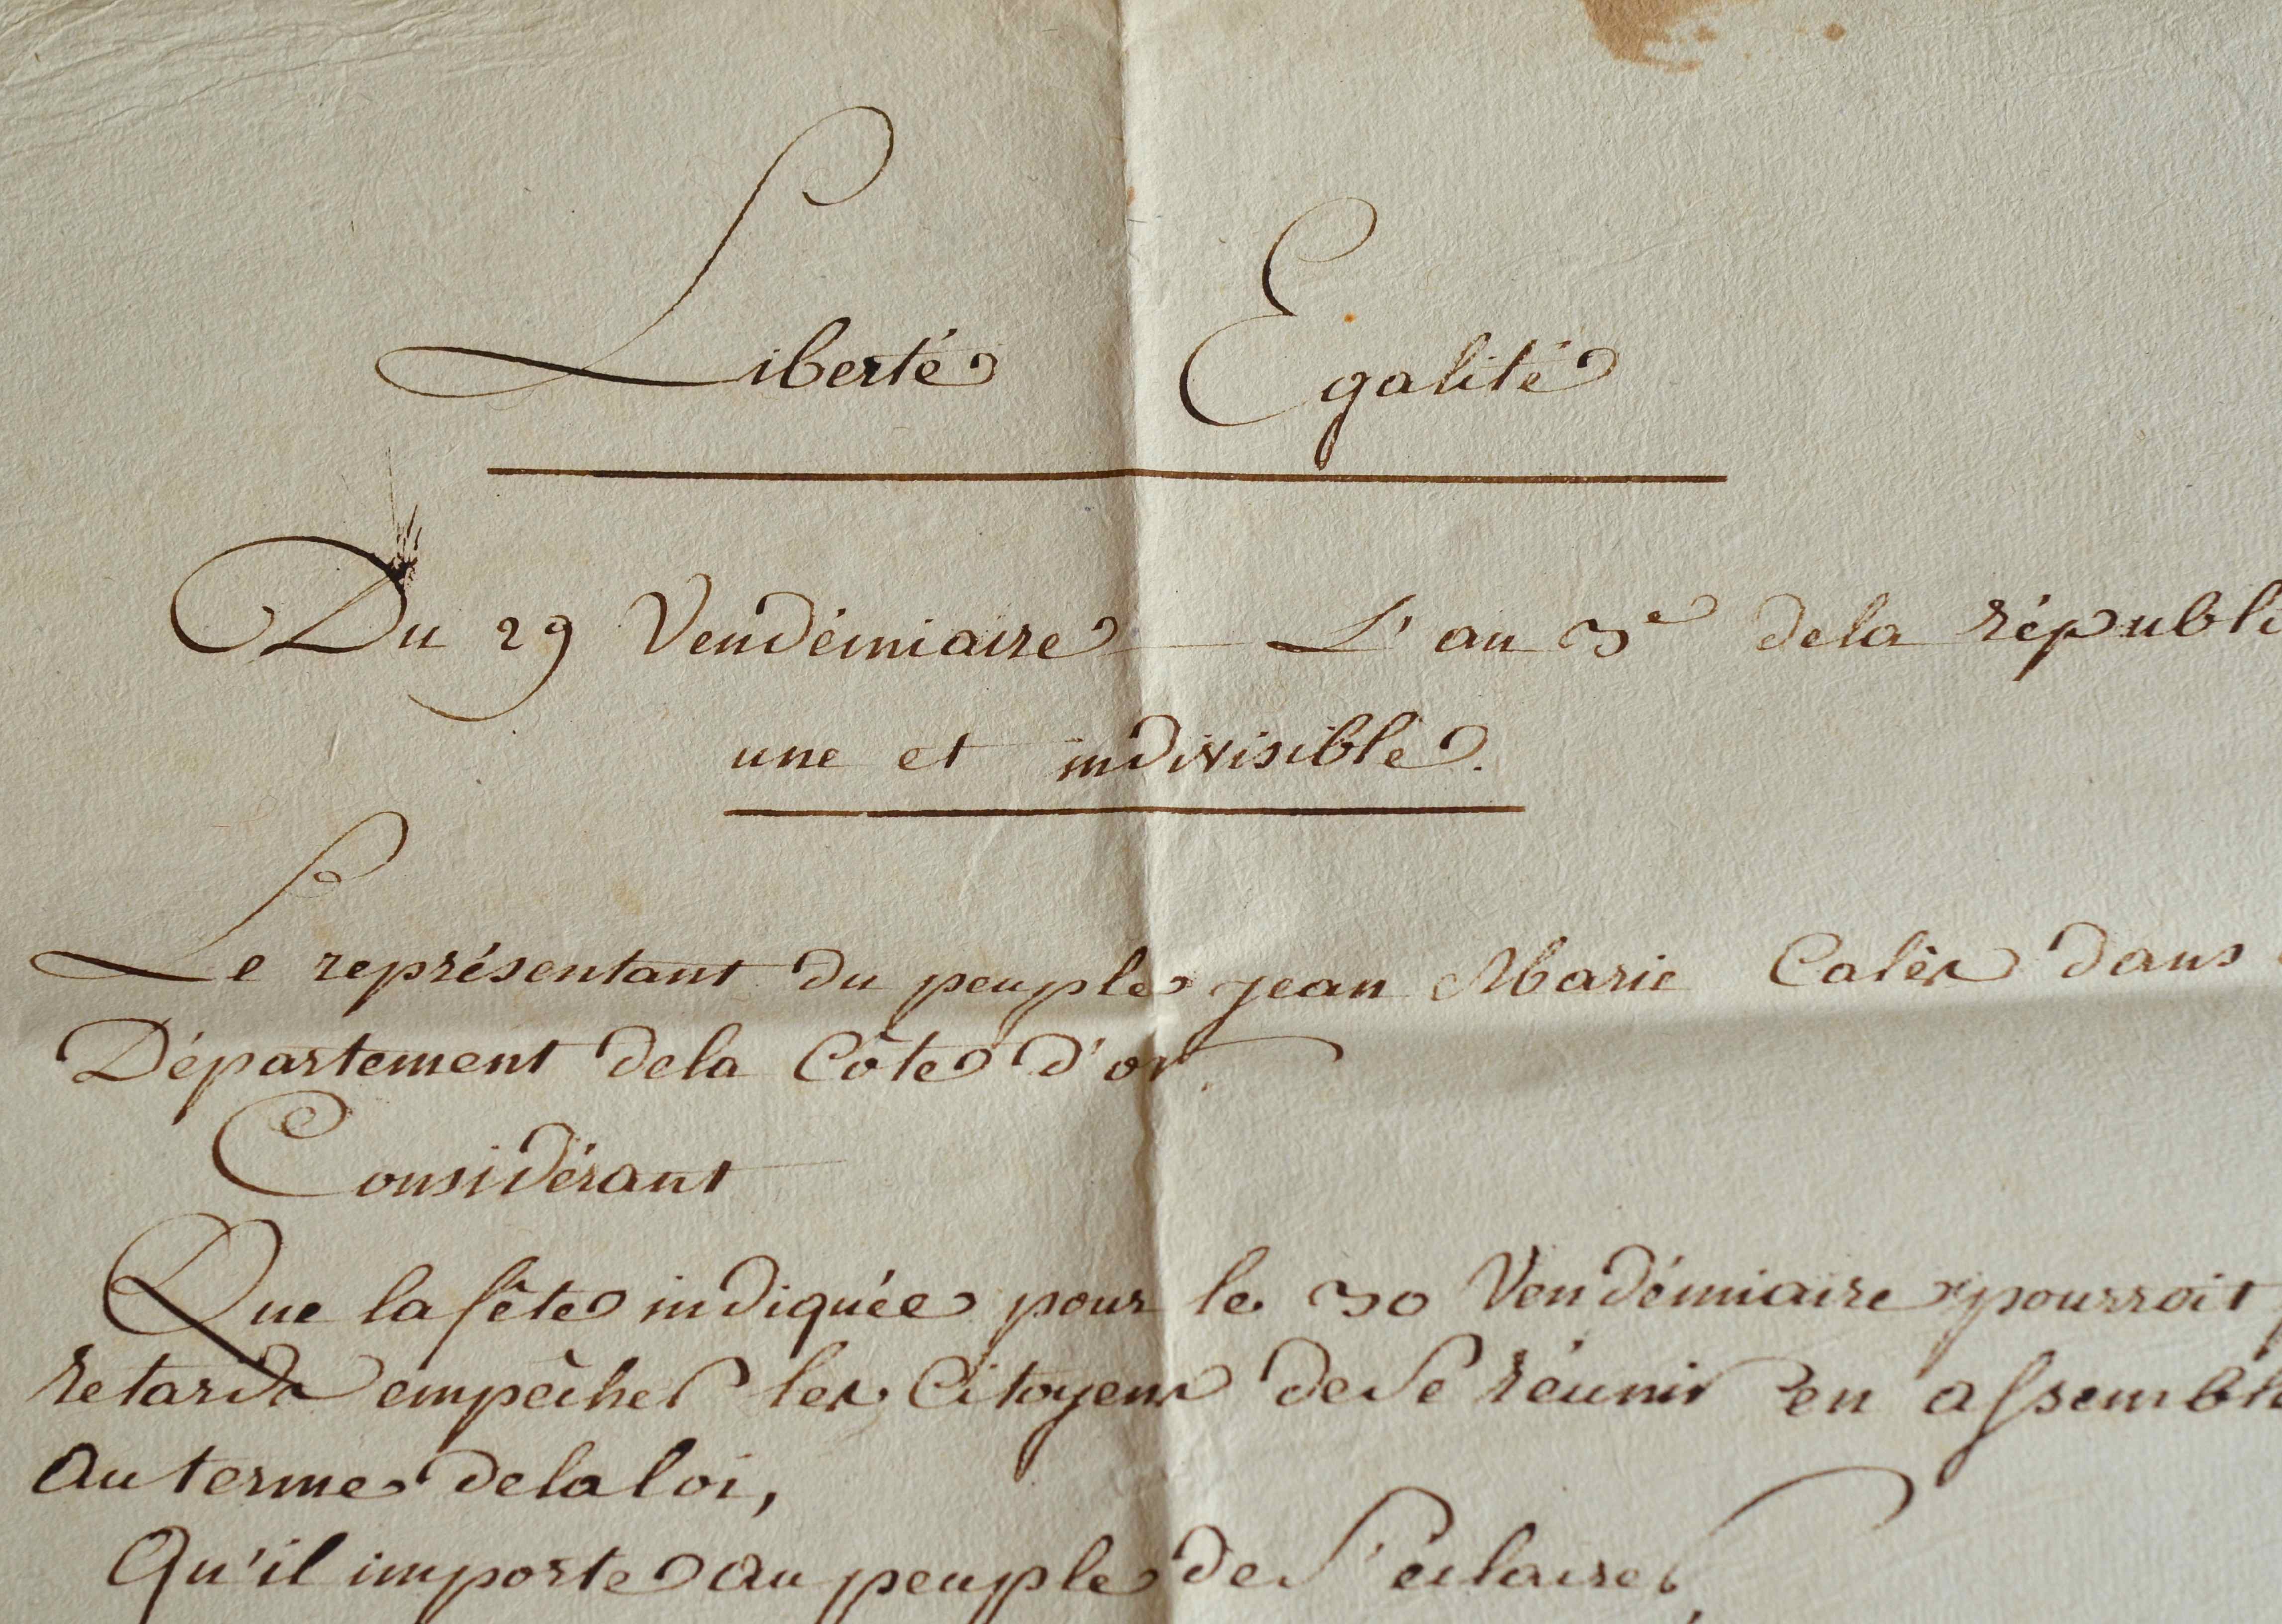 Liberté Egalité
Du 29 Vendémiaire L'an 3e dela républi
une et indivisible.
Le représentant du peuple jean Marie Calès dans
Département dela Côte d'or.
Considérant
Que la fête indiquée pour le 30 Vendémiaire pourroit
retard empêcher les Citoyens de se réunir en assemblé
Au terme dela loi,
Qu'il importe au peuple de s'éclairer,